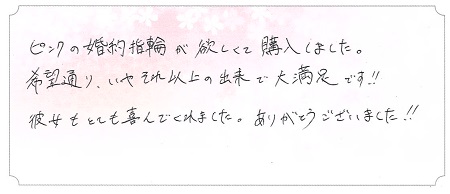 ピンクの婚約指輪が欲しくて購入しました。
希望通り、いやそれ以上の出来で大満足です!!
彼女もとても喜んでくれました。ありがとうございました!!